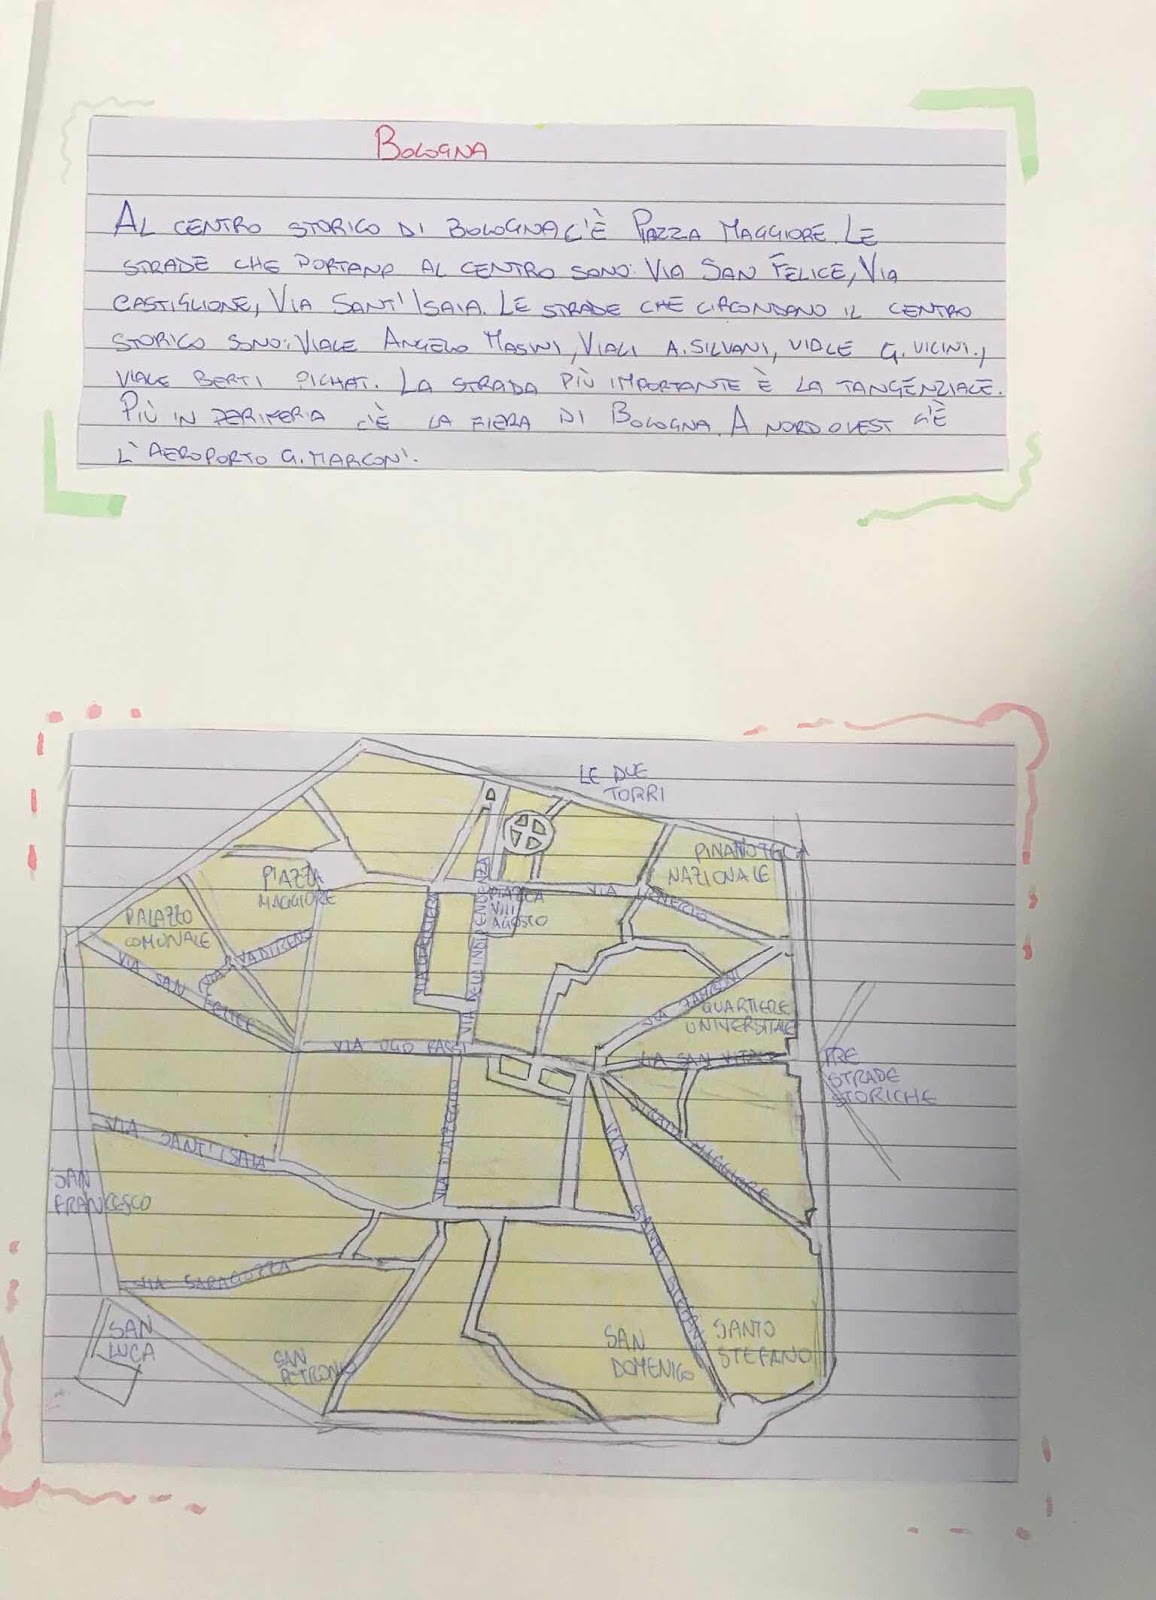 BOLOGNA
AL CENTRO STORICO DI BOLOGNA C'È PIAZZA MAGGIORE. LE
STRADE CHE PORTANO AL CENTRO SONO: VIA SAN FELICE, VIA
CASTIGLIONE, VIA SANT'ISAIA. LE STRADE CHE CIRCONDANO IL CENTRO
STORICO SONO: VIALE ANGELO MASINI, VIALI A. SILVANI, VIALE G. VICINI,
VIALE BERTI PICHAT. LA STRADA PIÙ IMPORTANTE È LA TANGENZIALE.
PIÙ IN PERIFERIA C'È LA FIERA DI BOLOGNA. A NORD OVEST C'È
L'AEROPORTO G. MARCONI.
LE DUE
TORRI
NAZIONALE
PIAZZA
MAGGIORE
PIAZZA
VIII
AGOSTO
VIA
PALAZZO
COMUNALE
VIA SAN FELICE
VIA
QUARTIERE
VIA UGO BASSI
VIA SAN VITALE
TRE
STRADE
STORICHE
STRADA MAGGIORE
VIA SANT'ISAIA
SAN
FRANCESCO
VIA SARAGOZZA
VIA SANTO STEFANO
SAN
LUCA
SAN
PETRONIO
SAN
DOMENICO
SANTO
STEFANO